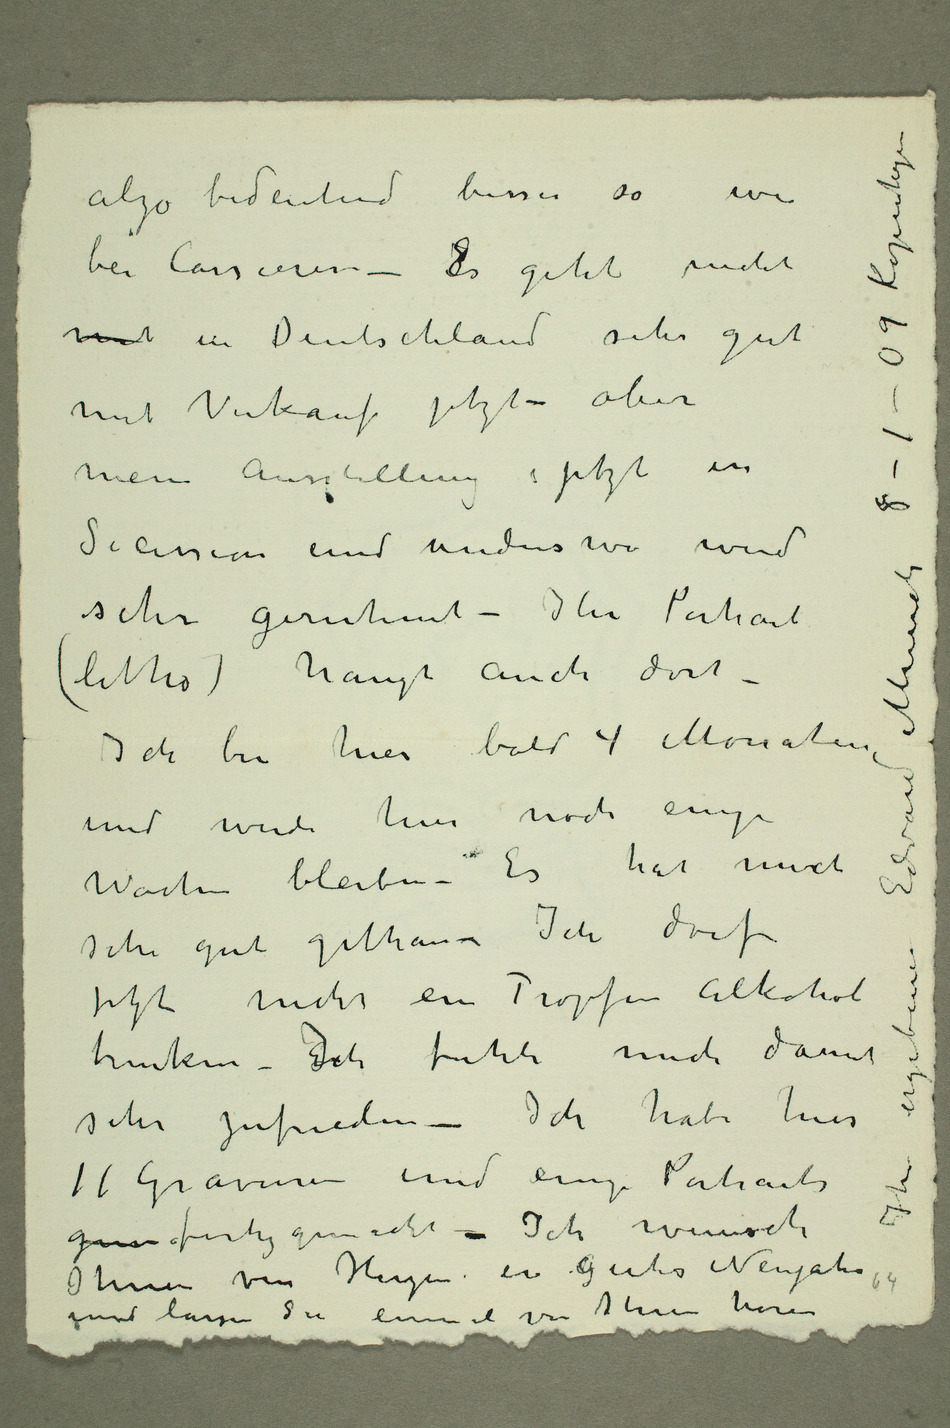 also bedeutend besser so wie
bei Cassierer – Es geht nicht
mit in Deutschland sehr gut
mit Verkauf jetzt – aber
mein Ausstellung jetzt in
Secession und anderswo wird
sehr gerühmt – Ihr Portrait
(litho) hängt auch dort –
Ich bin hier bald 4 Monaten
und werde hier noch einige
Wochen bleiben – Es hat mich
sehr gut gethan – Ich darf
jetzt nicht ein Tropfen Alkohol
trinken – Ich fühle mich damit
sehr zufrieden – Ich habe hier
11 Gravuren und einige Portraits
fertig gemacht – Ich wünsche
Ihnen von Herzen ein Gutes Neujahr
und lassen Sie einmal von Ihnen hören
Ihr ergebener Edvard Munch 8–1–09 Kopenhagen
64